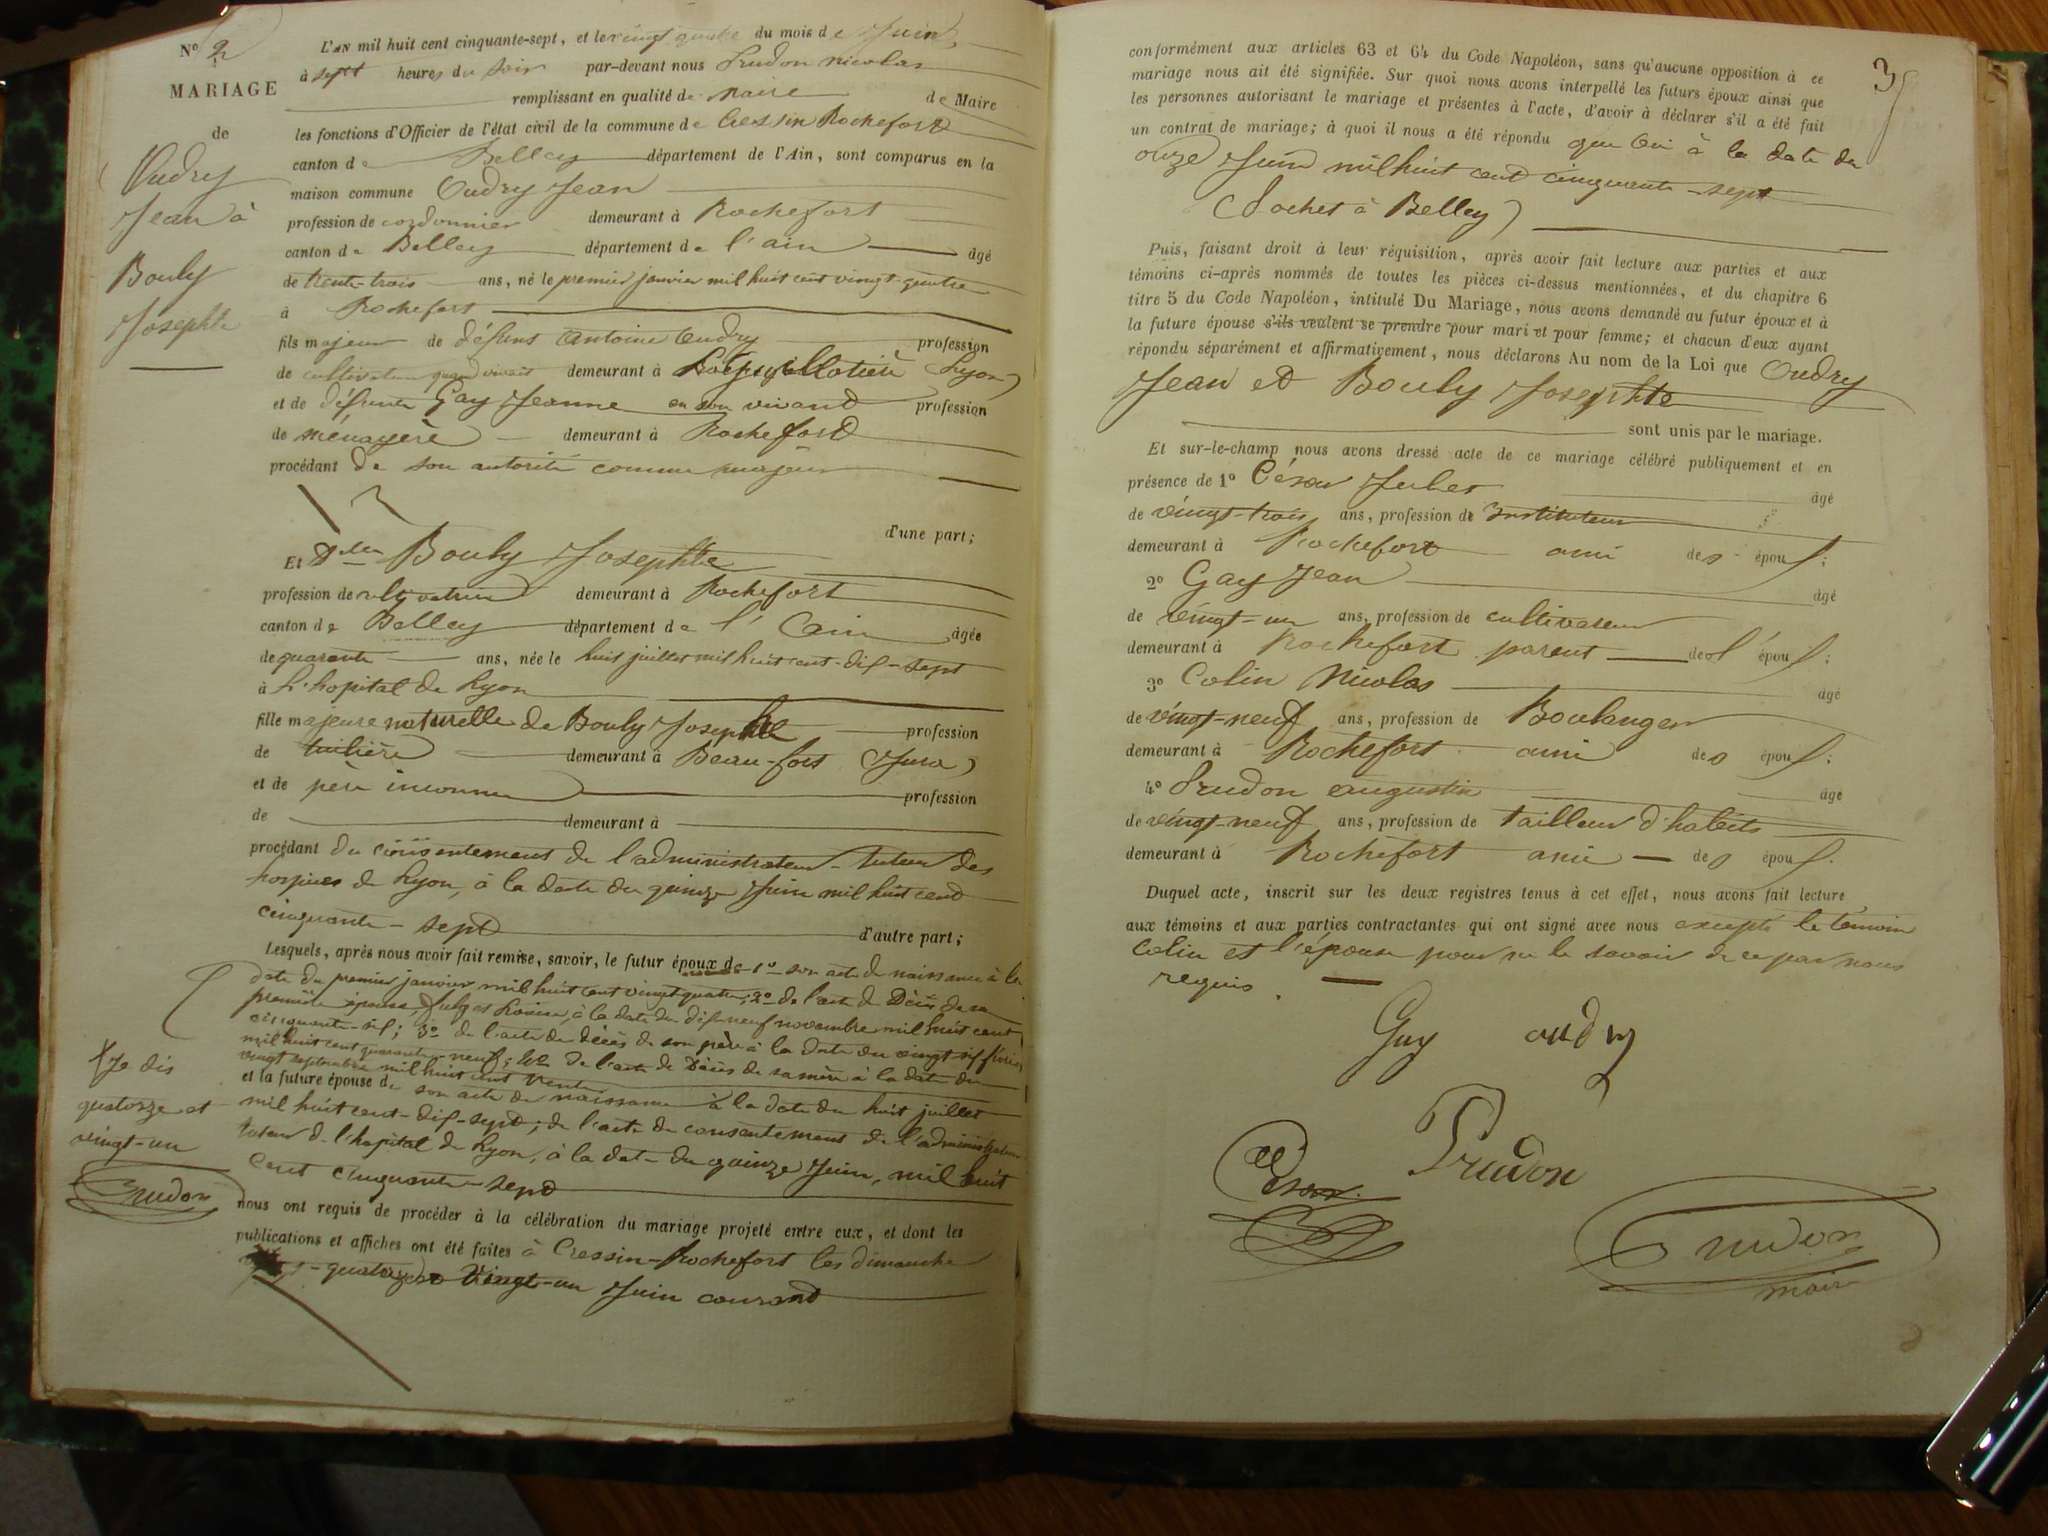 N.º 2
MARIAGE
de
Oudry
Jean à
Bouly
Josephte
L'AN mil huit cent cinquante-sept, et le vingt quatre du mois de Juin
à sept heures du soir par-devant nous Prudon nicolas
remplissant en qualité de maire de Maire
les fonctions d'Officier de l'état civil de la commune de Cressin Rochefort
canton de Belley département de l'Ain, sont comparus en la
maison commune Oudry Jean
profession de cordonnier demeurant à Rochefort
canton de Belley département de l'ain âgé
de trente-trois ans, né le premier janvier mil huit cent vingt-quatre
à Rochefort
fils majeur de défunt Antoine Oudry profession
de cultivateur quand vivait demeurant à (Lyon)
et de défunte Gay Jeanne en son vivant profession
de ménagère demeurant à Rochefort
procédant de son autorité comme majeur
d'une part;
Et Dlle Bouly Josephte
profession de cultivatrice demeurant à Rochefort
canton de Belley département de l'ain âgée
de quarante ans, née le huit juillet mil huit cent-dix-sept
à L'hopital de Lyon
fille majeure naturelle de Bouly Josephte profession
de tuilière demeurant à Beau-fort (Jura)
et de père inconnu profession
de demeurant à
procédant du consentement de l'administrateur-tuteur des
hospices de Lyon, à la date du quinze Juin mil huit cent
cinquante-sept d'autre part;
Lesquels, après nous avoir fait remise, savoir, le futur époux de 1º son acte de naissance à la
date du premier janvier mil huit cent vingt quatre; 2º de l'acte de Décès de sa
première épouse, à la date du dix neuf novembre mil huit cent
cinquante-six; 3º de l'acte de décès de son père à la date du vingt six février
mil huit cent quarante-neuf; 4º de l'acte de Décès de sa mère à la date du
vingt septembre mil huit cent trente
et la future épouse de son acte de naissance à la date du huit juillet
mil huit cent-dix-sept; de l'acte de consentement de l'administrateur
tuteur de l'hopital de Lyon, à la date du quinze Juin, mil huit
cent cinquante-sept
nous ont requis de procéder à la célébration du mariage projeté entre eux, et dont les
publications et affiches ont été faites à Cressin-Rochefort les dimanche
quatorze et vingt-un Juin courant
Je dis
quatorze et
vingt-un
Prudon
3
conformément aux articles 63 et 64 du Code Napoléon, sans qu'aucune opposition à ce
mariage nous ait été signifiée. Sur quoi nous avons interpellé les futurs époux ainsi que
les personnes autorisant le mariage et présentes à l'acte, d'avoir à déclarer s'il a été fait
un contrat de mariage; à quoi il nous a été répondu que Oui à la date du
onze Juin mil huit cent cinquante-sept
(Pochet à Belley)
Puis, faisant droit à leur réquisition, après avoir fait lecture aux parties et aux
témoins ci-après nommés de toutes les pièces ci-dessus mentionnées, et du chapitre 6
titre 5 du Code Napoléon, intitulé Du Mariage, nous avons demandé au futur époux et à
la future épouse s'ils veulent se prendre pour mari et pour femme; et chacun d'eux ayant
répondu séparément et affirmativement, nous déclarons Au nom de la Loi que Oudry
Jean et Bouly Josephte
sont unis par le mariage.
Et sur-le-champ nous avons dressé acte de ce mariage célébré publiquement et en
présence de 1º César Jules âgé
de vingt-trois ans, profession de Instituteur
demeurant à Rochefort ami des époux;
2º Gay Jean âgé
de vingt-un ans, profession de cultivateur
demeurant à Rochefort parent de l'époux;
3º Colin Nicolas âgé
de vingt-neuf ans, profession de Boulanger
demeurant à Rochefort ami des époux;
4º Prudon augustin âgé
de vingt-neuf ans, profession de tailleur d'habits
demeurant à Rochefort ami des époux.
Duquel acte, inscrit sur les deux registres tenus à cet effet, nous avons fait lecture
aux témoins et aux parties contractantes qui ont signé avec nous excepté le témoin
Colin et l'épouse pour ne le savoir de ce par nous
requis.
Gay oudry
César Prudon
Prudon
maire